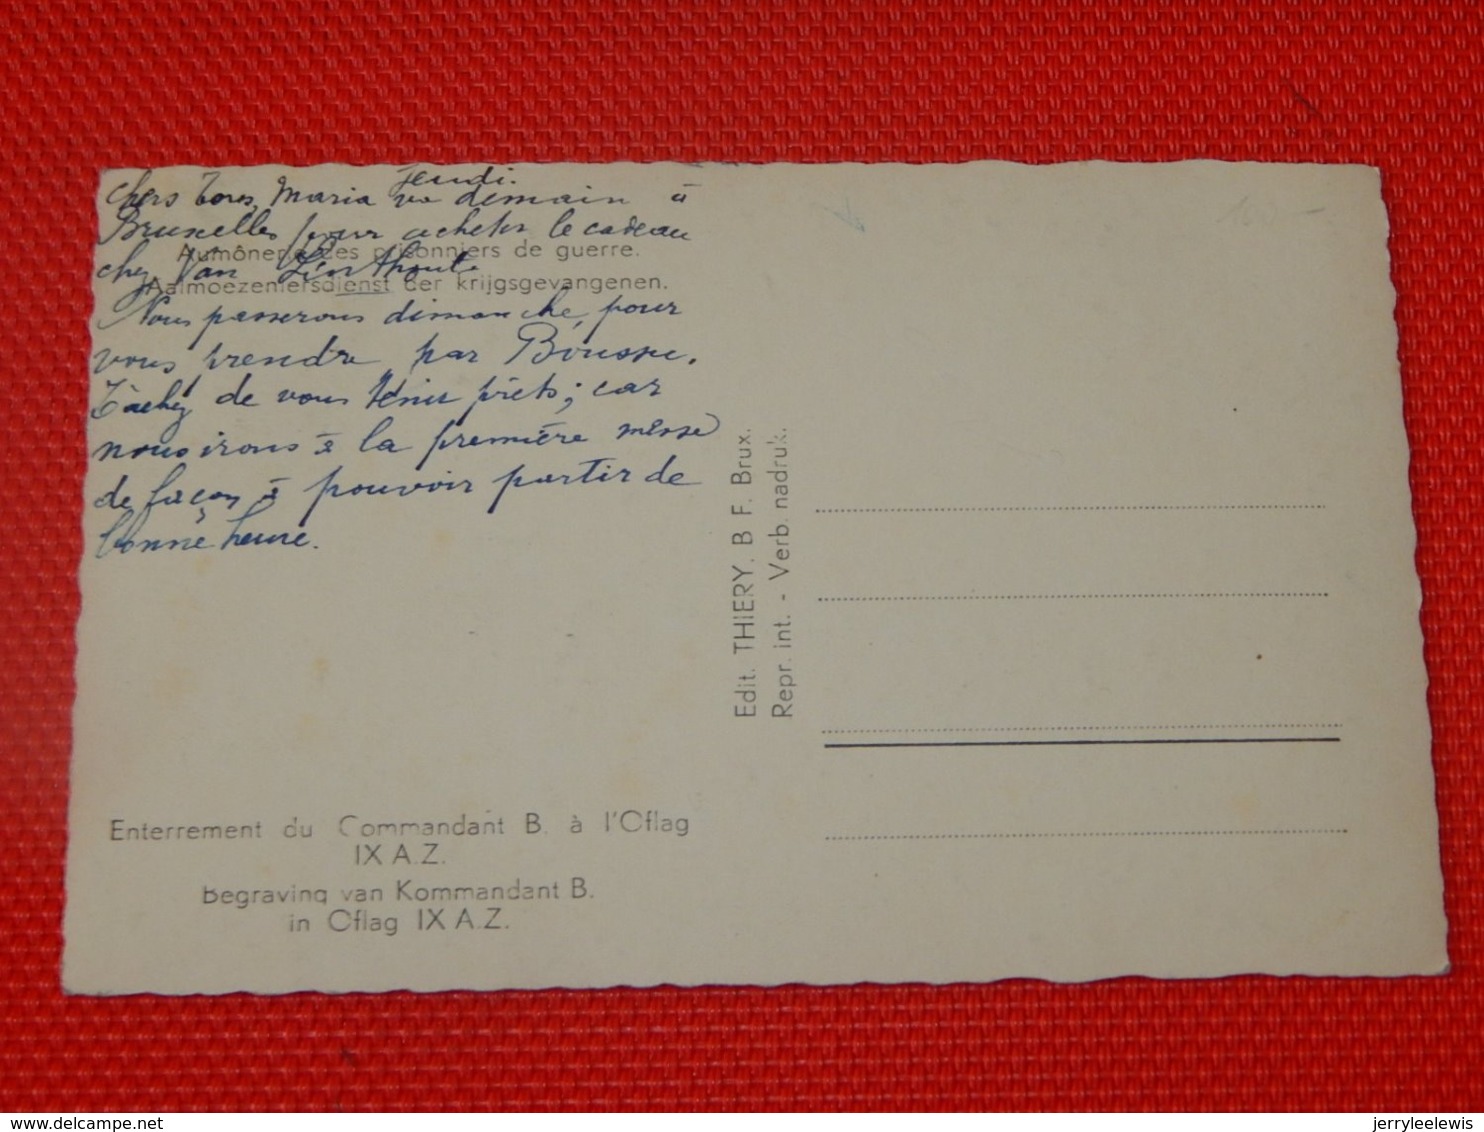 Jeudi.
Chers tous, Maria va demain à
Bruxelles pour acheter le cadeau
Aumônerie des prisonniers de guerre.
chez Van Linthout
Aalmoezeniersdienst der krijgsgevangenen.
Nous passerons dimanche, pour
vous prendre par Boussu.
Tâchez de vous tenir prêts; car
nous irons à la première messe
de façon à pouvoir partir de
bonne heure.
Edit. THIERY. B F. Brux.
Repr. int. - Verb. nadruk.
Enterrement du Commandant B. à l'Oflag
IX A.Z.
Begraving van Kommandant B.
in Oflag IX A.Z.
delcampe.net
jerryleelewis